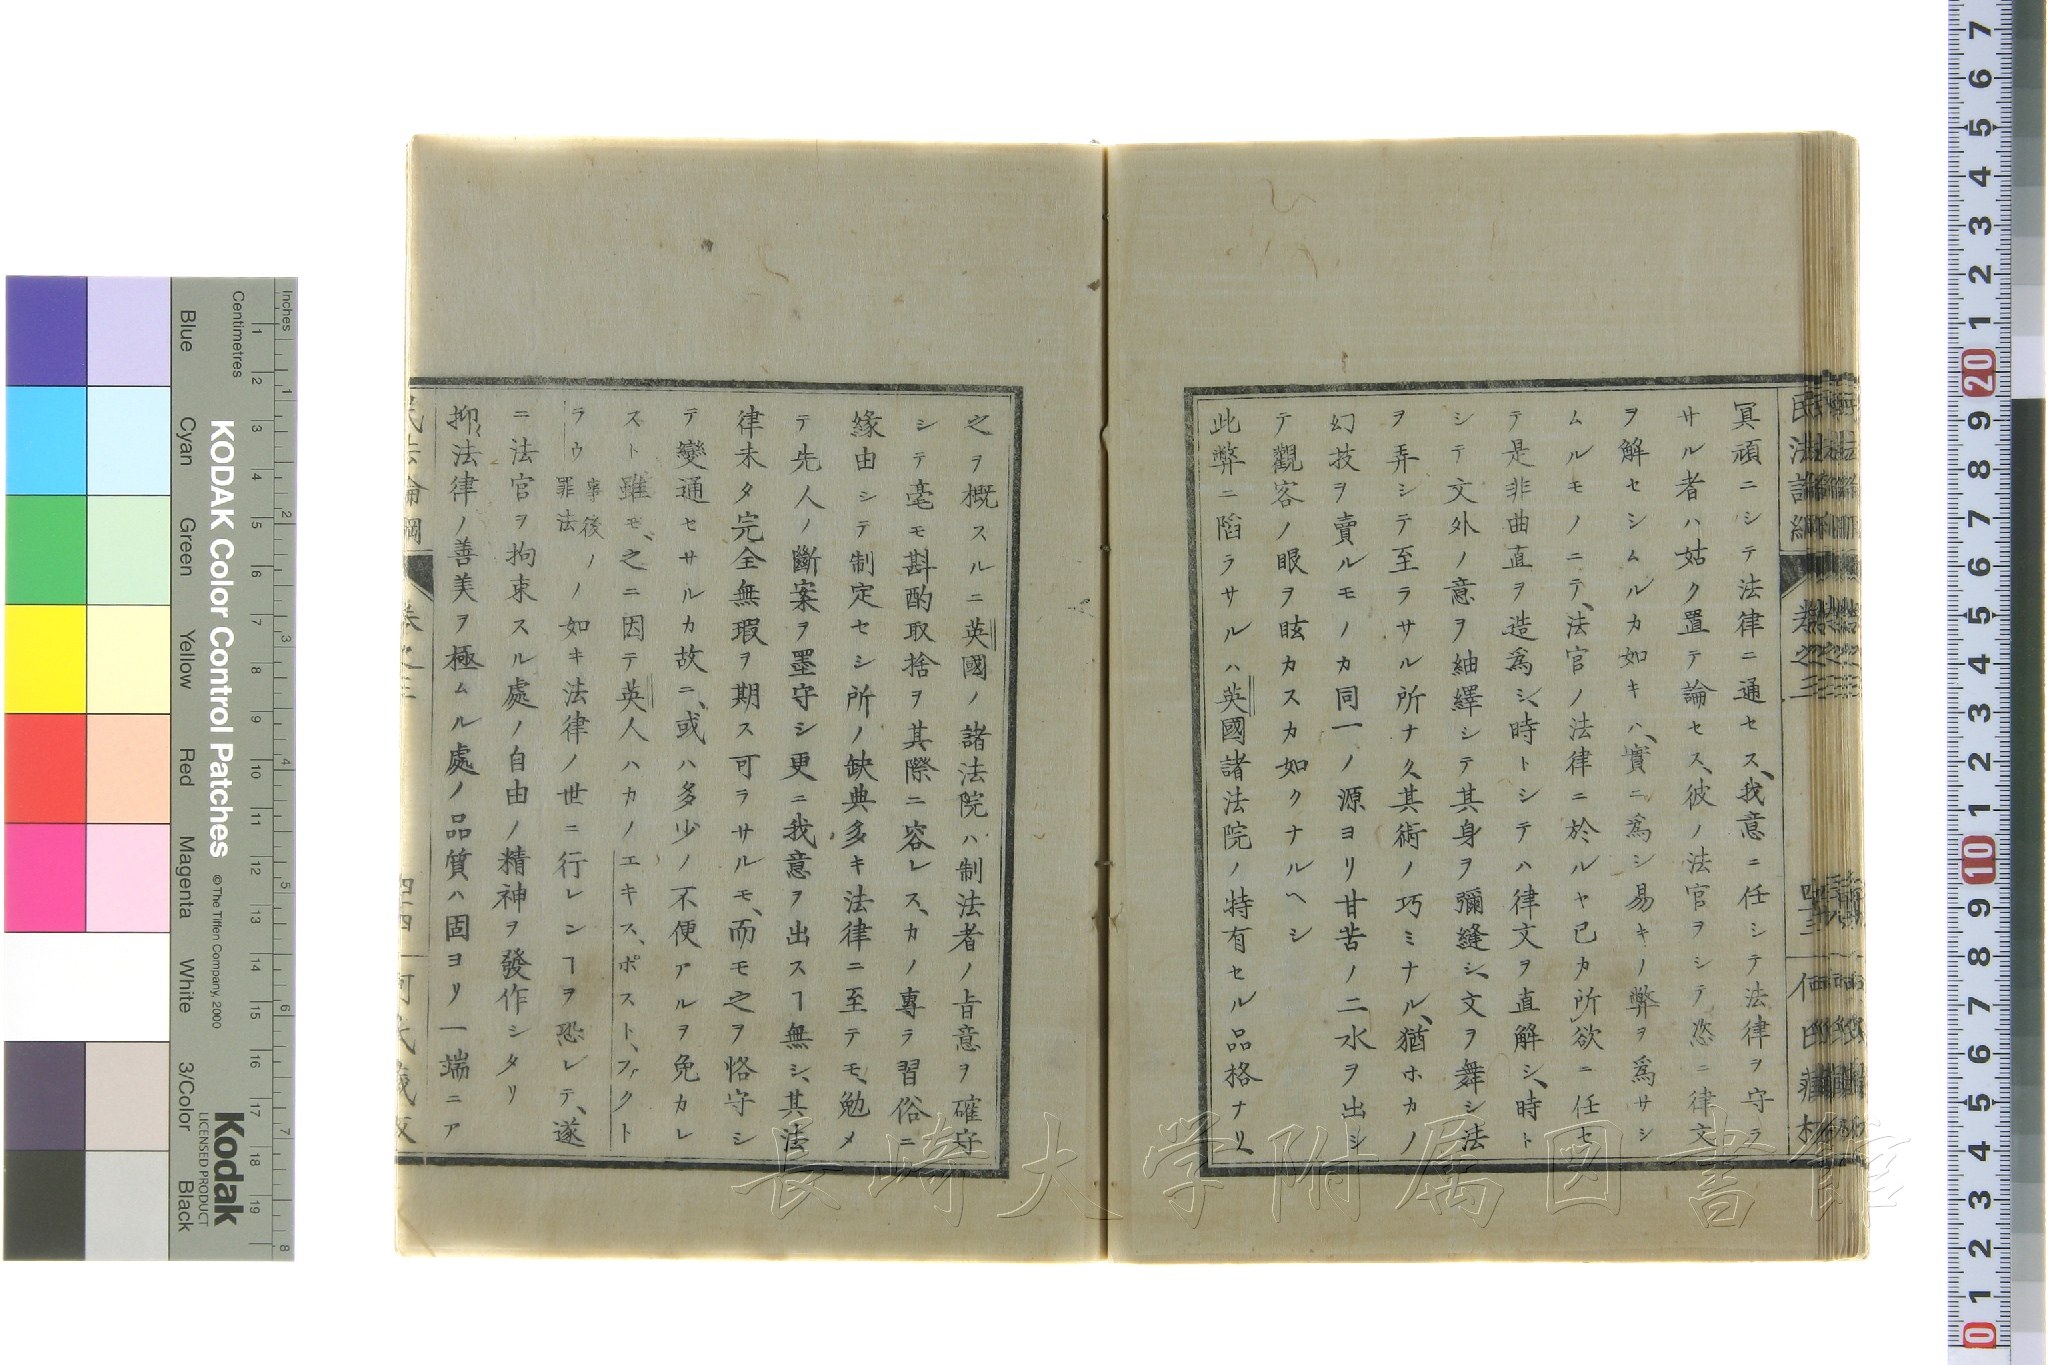 冥頑ニシテ法律ニ通セス、我意ニ任シテ法律ヲ守ラ
サル者ハ姑ク置テ論セス、彼ノ法官ヲシテ恣ニ律文
ヲ解セシムルカ如キハ、實ニ爲シ易キノ弊ヲ爲サシ
ムルモノニテ、法官ノ法律ニ於ルヤ已カ所欲ニ任セ
テ是非曲直ヲ造爲シ、時トシテハ律文ヲ直解シ、時ト
シテ文外ノ意ヲ紬繹シテ其身ヲ彌縫シ、文ヲ舞シ法
ヲ弄シテ至ラサル所ナク、其術ノ巧ミナル、猶ホカノ
幻技ヲ賣ルモノカ同一ノ源ヨリ甘苦ノ二水ヲ出シ
テ觀客ノ眼ヲ眩カスカ如クナルヘシ
此弊ニ陷ラサルハ英國諸法院ノ特有セル品格ナリ
之ヲ概スルニ英國ノ諸法院ハ制法者ノ旨意ヲ確守
シテ毫モ斟酌取捨ヲ其際ニ容レス、カノ專ラ習俗ニ
緣由シテ制定セシ所ノ缺典多キ法律ニ至テモ、勉メ
テ先人ノ斷案ヲ墨守シ更ニ我意ヲ出スヿ無シ、其法
律未タ完全無瑕ヲ期ス可ラサルモ、而モ之ヲ恪守シ
テ變通セサルカ故ニ、或ハ多少ノ不便アルヲ免カレ
スト雖モ、之ニ因テ英人ハカノエキス、ポスト、ファクト
ラウ事後ノ罪法ノ如キ法律ノ世ニ行レンヿヲ恐レテ、遂
ニ法官ヲ拘束スル處ノ自由ノ精神ヲ發作シタリ
抑法律ノ善美ヲ極ムル處ノ品質ハ固ヨリ一端ニア
民法論綱 卷之三 四四 何氏藏板
民法論綱 卷之三 四三 何氏藏板
長崎大学附属図書館
KODAK Color Control Patches
© The Tiffen Company, 2000
Kodak
LICENSED PRODUCT
Inches
Centimetres
1 2 3 4 5 6 7 8
1 2 3 4 5 6 7 8 9 10 11 12 13 14 15 16 17 18 19
Blue
Cyan
Green
Yellow
Red
Magenta
White
3/Color
Black
7 6 5 4 3 2 1 20 9 8 7 6 5 4 3 2 1 10 9 8 7 6 5 4 3 2 1 0